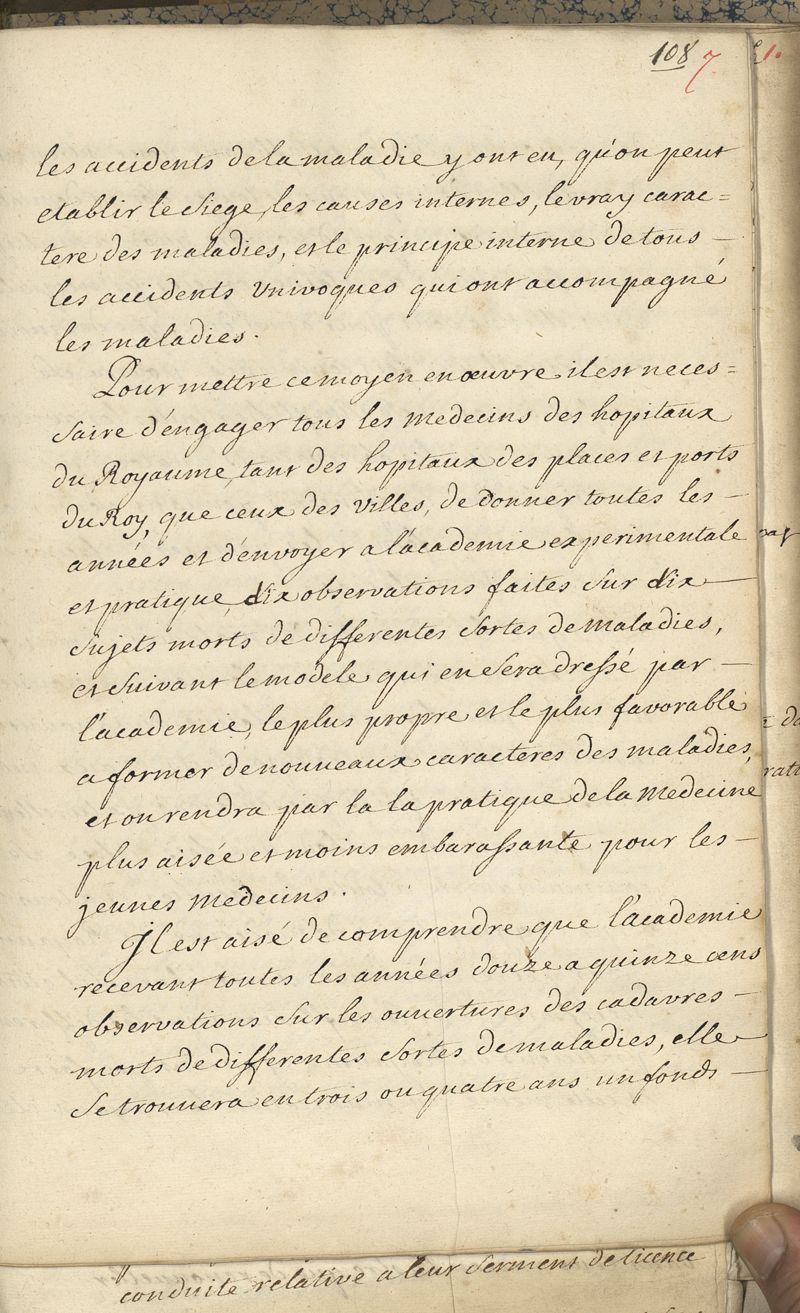 108 7 1.
les accidents de la maladie y ont eu, qu'on peut
etablir le siege, les causes internes, le vray carac=
tere des maladies, et le principe interne de tous —
les accidents univoques qui ont accompagné
les maladies.
Pour mettre ce moyen en œuvre il est neces=
saire d'engager tous les medecins des hopitaux
du Royaume, tant des hopitaux des places et ports
du Roy, que ceux des villes, de donner toutes les —
années et d'envoyer a l'academie experimentale
et pratique, dix observations faites sur dix —
sujets morts de differentes sortes de maladies,
et suivant le modele qui en sera dressé par —
l'academie, le plus propre et le plus favorable
a former de nouveaux caracteres des maladies,
et on rendra par la la pratique de la medecine
plus aisée et moins embarassante pour les —
jeunes medecins.
Il est aisé de comprendre que l'academie
recevant toutes les années douze a quinze cens
observations sur les ouvertures des cadavres —
morts de differentes sortes de maladies, elle
se trouvera en trois ou quatre ans un fonds —
conduite relative a leur serment de licence